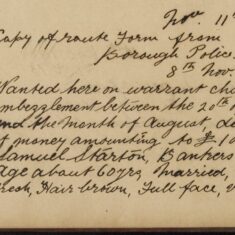 Nov. 11th
Copy of route Form from
Borough Police
8th Nov.
Wanted here on warrant
embezzlement between the 20th
and the month of August,
of money amounting to £10
Samuel Starton, Bankers
Age about 60 yrs, Married,
fresh, Hair brown, Full face,